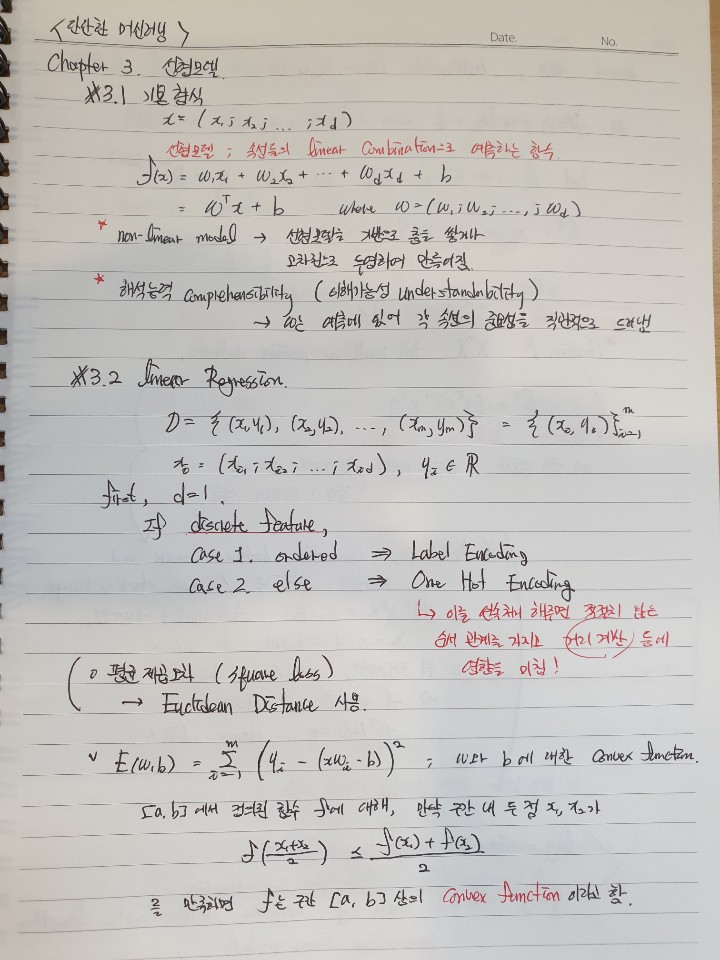 <단단한 머신러닝>
Date. No.
Chapter 3. 선형모델.
※3.1 기본 형식
x = (x₁; x₂; ... ; x_d)
선형모델 ; 속성들의 linear combination으로 예측하는 함수.
f(x) = w₁x₁ + w₂x₂ + ... + w_d x_d + b
= wᵀx + b where w = (w₁; w₂; ..., ; w_d)
* non-linear model → 선형모델을 기반으로 층을 쌓거나
고차원으로 투영하여 만들어짐.
* 해석능력 comprehensibility (이해가능성 understandability)
→ w는 예측에 있어 각 속성의 중요성을 직관적으로 드러냄
※3.2 linear Regression.
D = {(x₁,y₁), (x₂,y₂), ..., (x_m,y_m)} = {(x_i, y_i)}_{i=1}^m
x_i = (x_i1; x_i2; ... ; x_id), y_i ∈ ℝ
first, d=1.
If discrete feature,
case 1. ordered ⇒ Label Encoding
case 2. else ⇒ One Hot Encoding
↳ 이를 연속처리 해주면 적절치 않은
순서 관계를 가지고 거리 계산 등에
영향을 미침!
○ 평균 제곱오차 (square loss)
→ Euclidean Distance 사용.
∨ E(w,b) = Σ_{i=1}^m (y_i - (xw_i - b))² ; w와 b에 대한 convex function.
[a, b]에서 정의된 함수 f에 대해, 만약 구간 내 두 점 x₁, x₂가
f((x₁+x₂)/2) ≤ (f(x₁) + f(x₂))/2
를 만족하면 f는 구간 [a, b] 상의 convex function 이라고 함.